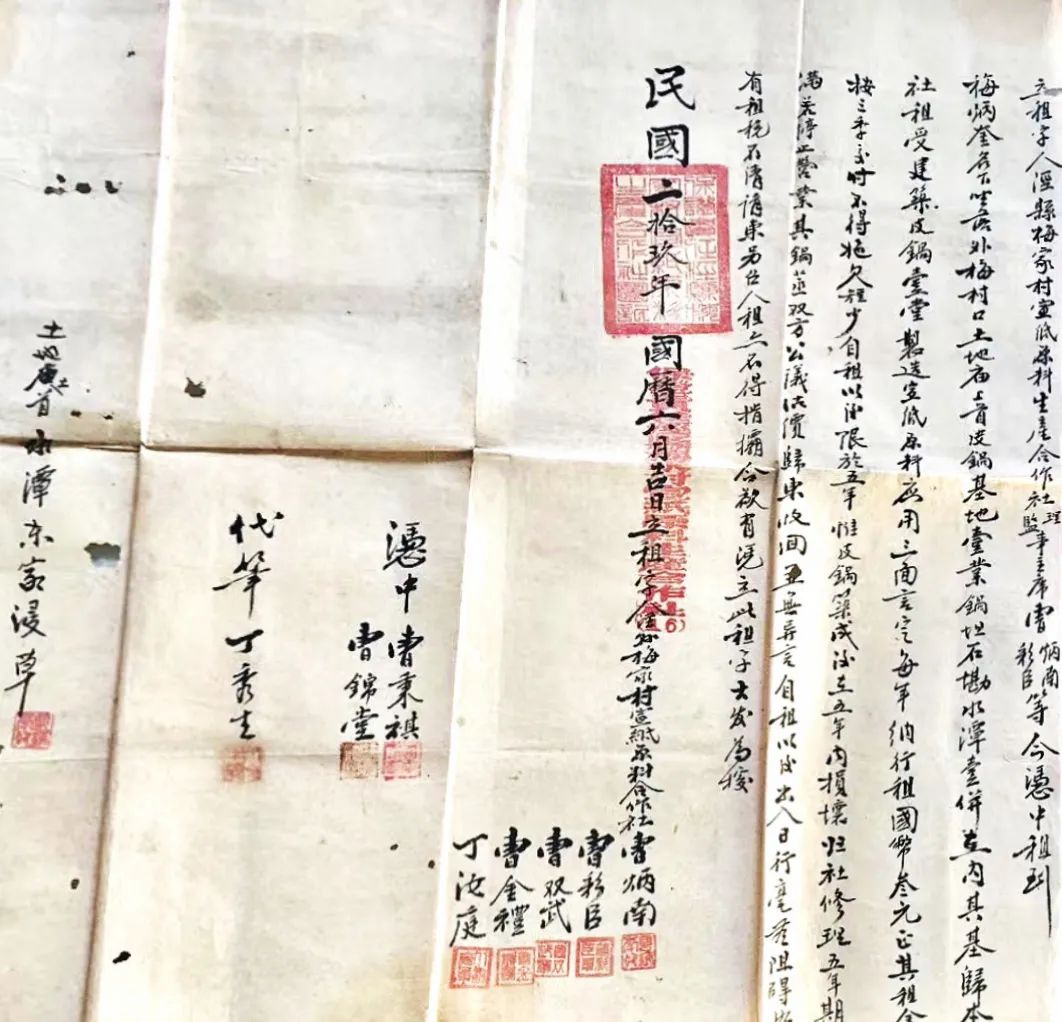 立租字人涇縣梅家村宣紙原料生產合作社理監事主席曹炳南彩臣等今憑中租到
梅炳奎名下坐落外梅村口土地庙上首皮鍋基地壹業鍋坦石磡水潭壹併在內其基歸本
社租受建築皮鍋壹堂製造宣紙原料应用三面言定每年纳行租國幣叁元正其租金
按三季交付不得拖欠短少自租以後限於五年惟皮鍋築成後在五年内損壞归社修理五年期
满若停止營業其鍋並双方公議估價歸東收回並無異言自租以後出入日行毫無阻碍
有租稅不清請東另召人租亦不得措攔合欲有凭立此租字大发為據
民國二拾玖年國曆六月吉日立租字人涇外梅家村宣紙原料合作社曹炳南
曹彩臣
曹双武
曹金禮
丁汝庭
憑中曹秉祺
曹錦堂
代筆丁秀生
土地庙上首水潭东家浸草